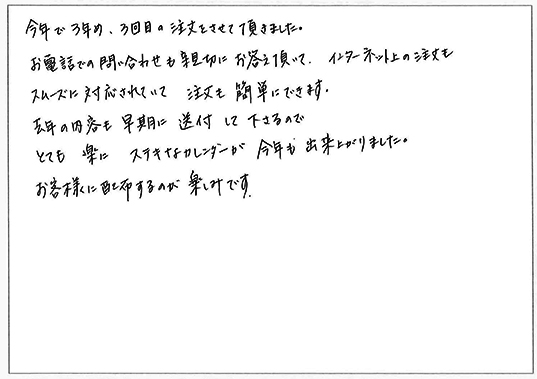 今年で3年め、3回目の注文をさせて頂きました。
お電話での問い合わせも親切にお答え頂いて、インターネット上の注文も
スムーズに対応されていて 注文も簡単にできます。
去年の内容も早期に送付して下さるので
とても 楽に ステキなカレンダーが 今年も出来上がりました。
お客様に配布するのが楽しみです。